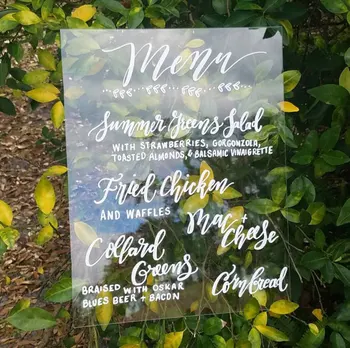 Menu
Summer Greens Salad
WITH STRAWBERRIES, GORGONZOLA,
TOASTED ALMONDS, & BALSAMIC VINAIGRETTE
Fried Chicken
AND WAFFLES
Mac +
Cheese
Collard
Greens
BRAISED WITH OSKAR
BLUES BEER + BACON
Cornbread